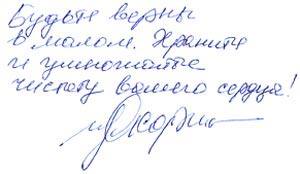 Будьте верны
в малом. Храните
и умножайте
чистоту вашего сердца!